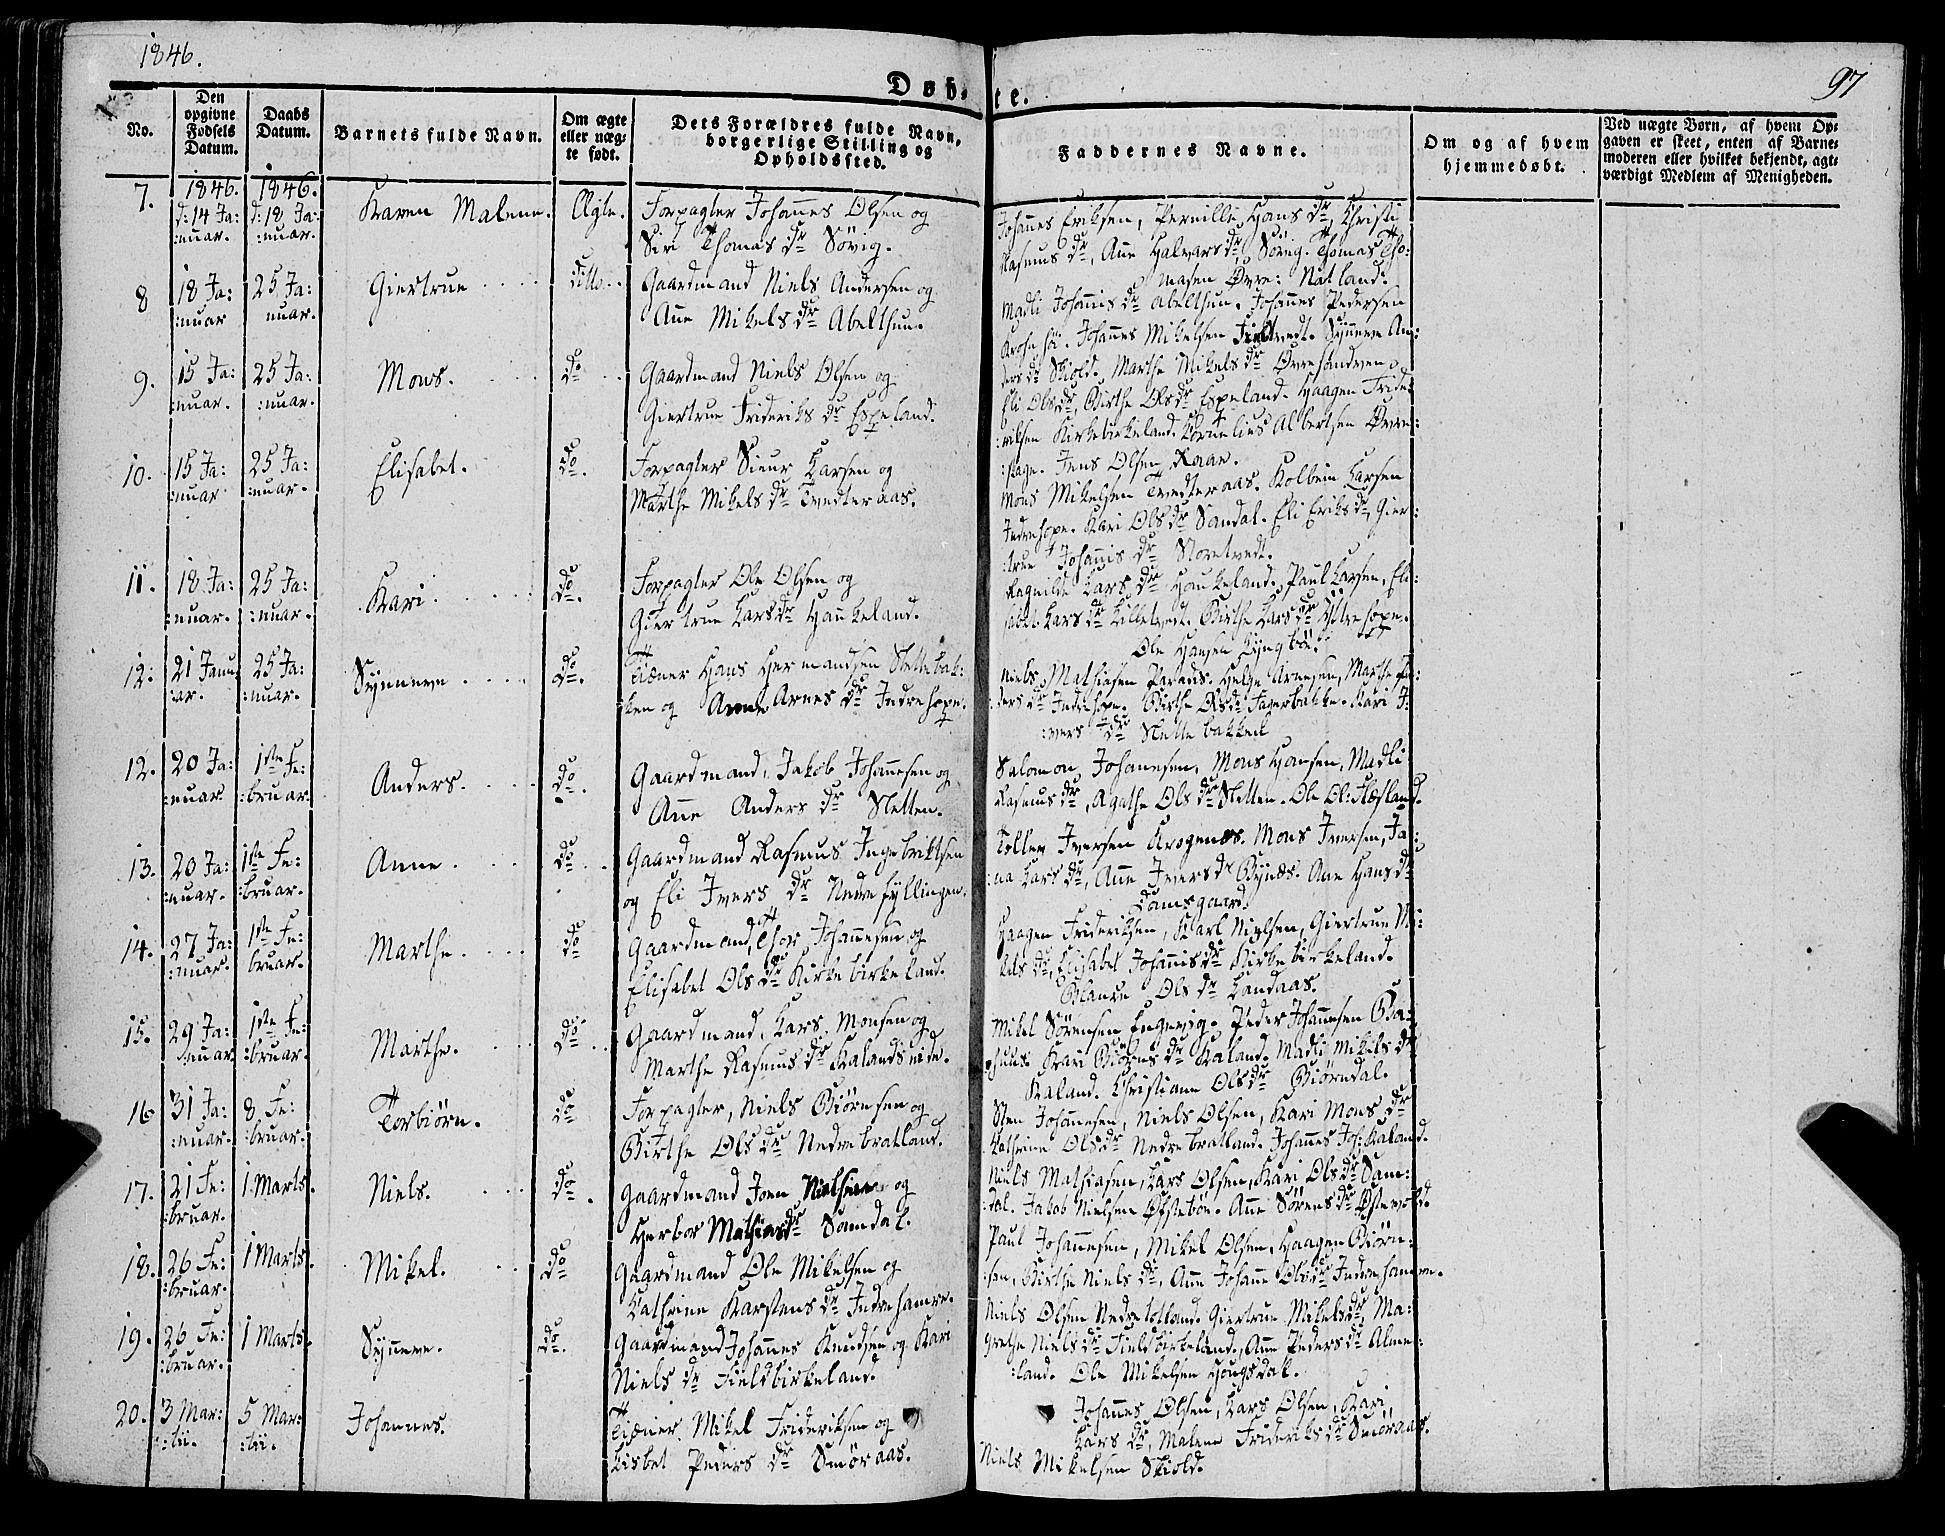 1846.
97
Døb- te.
No.
Den opgivne Fødsels Datum.
Daabs Datum.
Barnets fulde Navn.
Om ægte eller uæg- te født.
Dets Forældres fulde Navn, borgerlige Stilling og Opholdssted.
Faddernes Navne.
Om og af hvem hjemmedøbt.
Ved uægte Børn, af hvem Op- gaven er skeet, enten af Barne- moderen eller hvilket bekjendt, agt- værdigt Medlem af Menigheden.
7. 1846. d: 14 Ja: :nuar. 1846. d: 18 Ja: :nuar. Karen Malene. Ægte. Forpagter Johannes Olsen og
Siri Thomas dr Søvig.
Johannes Eriksen, Pernille Hans dr, Christi
Rasmus dr, Ane Halvars dr Søvig. Thomas Tho:
masen Øvre: Natland.
8 18 Ja: :nuar 25 Ja: nuar. Giertrue ditto. Gaardmand Niels Andersen og
Ane Mikels dr Abelthun.
Madli Johannis dr Abelthun. Johannes Pedersen
Johannes Mikelsen Synneve An:
ders dr Skiold. Marthe Mikels dr
9. 15 Ja: :nuar. 25 Ja: :nuar. Mons. do Gaardmand Niels Olsen og
Giertrue Frideriks dr Espeland.
Eli Ols dr, Birthe Ols dr Espeland. Haagen Fride
:riksen Kirkebirkeland. Kornelius Albertsen Øvre:
Jens Olsen Raae.
10. 15 Ja: :nuar 25 Ja: :nuar. Elisabet. do. Forpagter Siur Larsen og
Marthe Mikels dr Tvedteraas.
Mons Mikelsen Tvedteraas. Kolbein Larsen
Indrehope. Kari Ols dr Sandal. Eli Eriks dr, Gier:
:true Johannis dr Storetvedt.
11. 18 Ja: :nuar. 25 Ja: :nuar. Kari. do. Forpagter Ole Olsen og
Giertrue Lars dr Haukeland.
Ragnilde Lars dr Haukeland. Paul Larsen, Eli:
sabet Lars dr Lilletvedt. Birthe Lars dr Ytrehope.
Ole Hansen Lyngbøe.
12: 21 Janu ar. 25 Ja: nuar. Synneve. do. Tiæner Hans Hermandsen Slettebak:
ken og Anne Arnes dr Indrehope.
Niels Mathiasen Paradis. Helge Arnesen, Marthe
:ders dr Indrehope. Birthe Ols dr Fagerbakke. Kari I:
:vers dr Slettebakken
12. 20 Ja: :nuar 1ste Fe: :bruar Anders. do. Gaardmand, Jakob Johannesen og
Ane Anders dr Sletten.
Salomon Johannesen, Mons Hansen, Madli
Rasmus dr, Agathe Ols dr Sletten. Ole Ol:
13. 20 Ja: :nuar. 1ste Fe: :bruar. Anne. do. Gaardmand Rasmus Ingebriktsen
og Eli Ivers dr Nedrefyllingen.
Tollev Iversen Krogenæs. Mons Iversen, Ja:
:na Lars dr, Ane Ivers dr Bynæs. Ane Hans dr
Damsgaard.
14. 27 Ja: :nuar. 1ste Fe: bruar. Marthe. do Gaardmand, Thor Johannesen og
Elisabet Ols dr Kirkebirkeland.
Haagen Frideriksen, Karl Nielsen, Giertrue Mi:
kels dr, Elisabet Johannis dr Kirkebirkeland.
Ols dr Landaas.
15. 29 Ja: :nuar 1ste Fe: :bruar. Marthe. do. Gaardmand, Lars Monsen og
Marthe Rasmus dr Kalandseide.
Mikel Sørensen Peder Johannesen
Kari dr Kaland. Madli Mikels dr
Kaland. Christiane Ols dr Biørndal.
16 31 Ja: :nuar. 8 Fe: :bruar. Torbiørn. do Forpagter, Niels Biørnsen og
Birthe Ols dr Nedrebratland.
Sten Johannesen, Niels Olsen, Kari Mons dr
Kathrine Ols dr Nedrebratland. Johannes Joh: Kaland.
17. 21 Fe: :bruar. 1 Marts. Niels. do. Gaardmand Joen Nielsen og
Herbor Mathias dr Samdal.
Niels Mathiasen, Lars Olsen, Kari Ols dr Sam:
:dal. Jakob Nielsen Øfstebøe. Ane Sørens dr
18. 26 Fe: :bruar. 1 Marts. Mikel. do Gaardmand Ole Mikelsen og
Cathrine Karstens dr Indrehamre.
Paul Johannesen, Mikel Olsen, Haagen Biørn:
:sen, Birthe Niels dr, Ane Johanne Ols dr Indrehamre.
19. 26 Fe: :bruar. 1 Marts. Synneve. do. Gaardmand Johannes Knudsen og Kari
Niels dr Fieldbirkeland.
Niels Olsen Giertrue Mikels dr, Ma:
grethe Niels dr Fieldbirkeland, Ane Peders dr Alme:
:land. Ole Mikelsen Hougsdal.
20. 3 Mar: :tii. 5 Mar: :tii. Johannes. Tiæner Mikel Frideriksen og
Lisbet Peders dr Smøraas.
Johannes Olsen, Lars Olsen, Kari
Lars dr, Malene Frideriks dr Smøraas.
Niels Mikelsen Skiold.